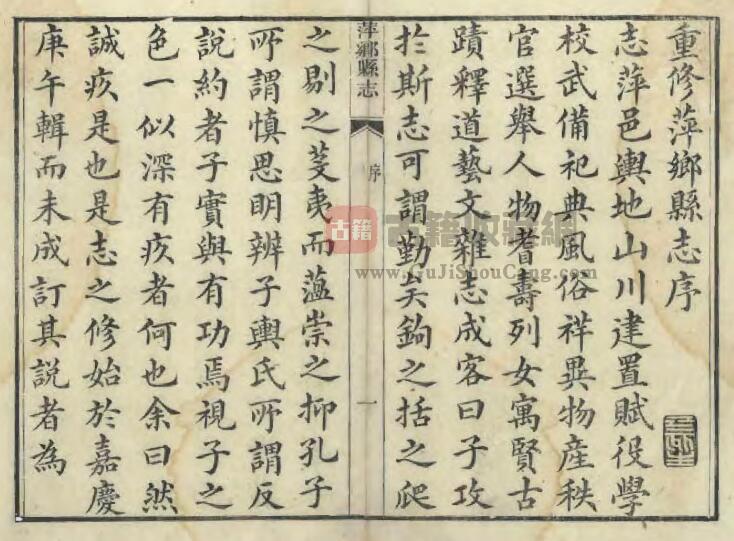 重修萍鄉縣志序
志萍邑輿地山川建置賦役學
校武備祀典風俗祥異物產秩
官選舉人物耆壽列女寓賢古
蹟釋道藝文雜志成客曰子攻
扵斯志可謂勤矣鉤之括之爬
萍鄉縣志
序
一
之剔之芟夷而薀崇之抑孔子
所謂慎思明辨子輿氏所謂反
說約者子實與有功焉視子之
色一似深有疚者何也余曰然
誠疚是也是志之修始於嘉慶
庚午輯而未成訂其說者為
古籍 古籍收藏網
www.GuJiShouCang.com